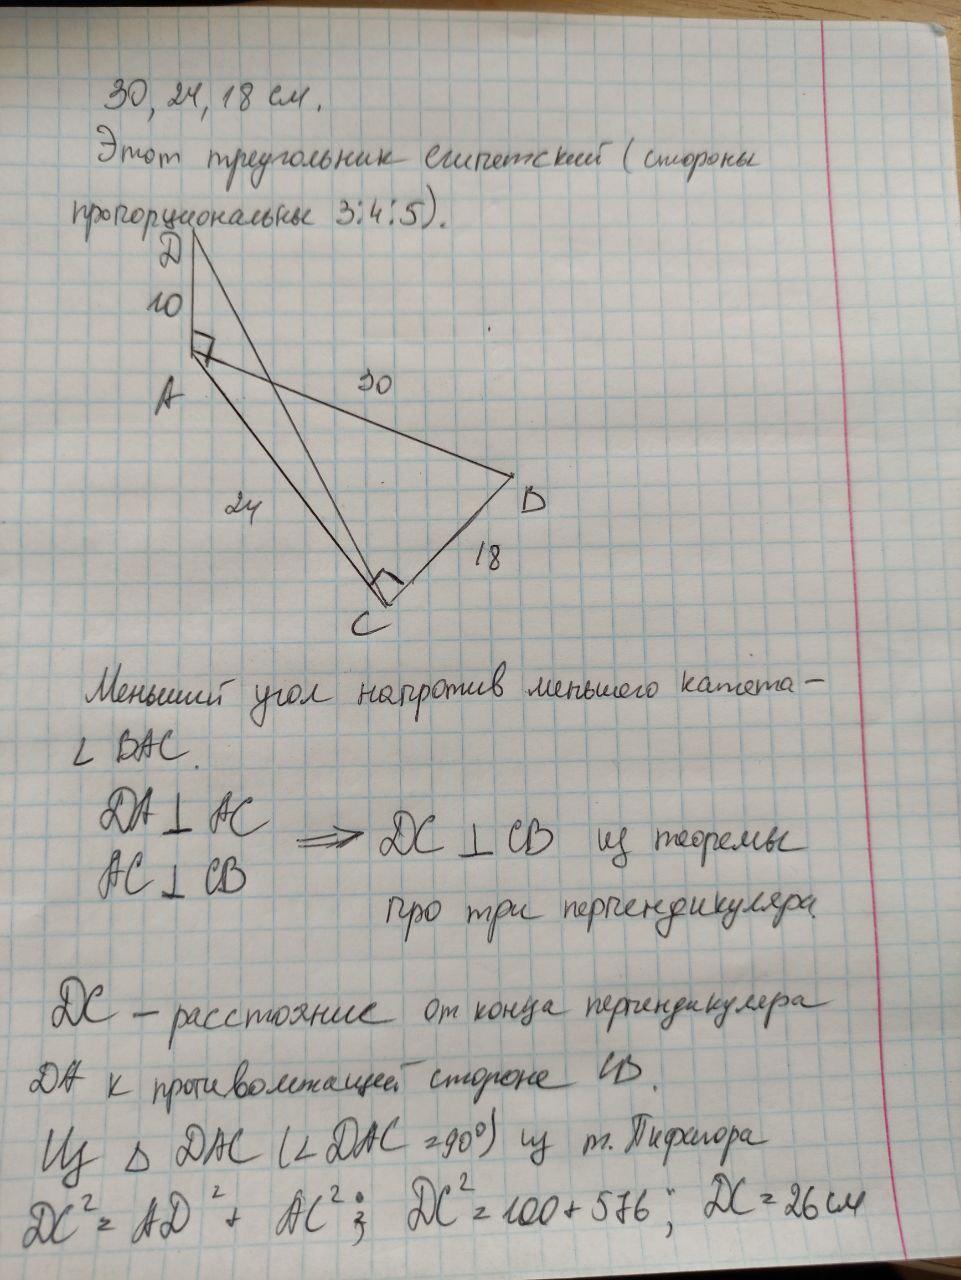 30, 24, 18 см.
Этот треугольник египетский (стороны
пропорциональны 3:4:5).
D
10
A
30
B
24
18
C
Меньший угол напротив меньшего катета –
∠ BAC.
DA ⊥ AC
AC ⊥ CB
⇒ DC ⊥ CB из теоремы
про три перпендикуляра
DC – расстояние от конца перпендикуляра
DA к противолежащей стороне CB.
Из △ DAC (∠ DAC = 90°) из т. Пифагора
DC² = AD² + AC²; DC² = 100 + 576; DC = 26 см